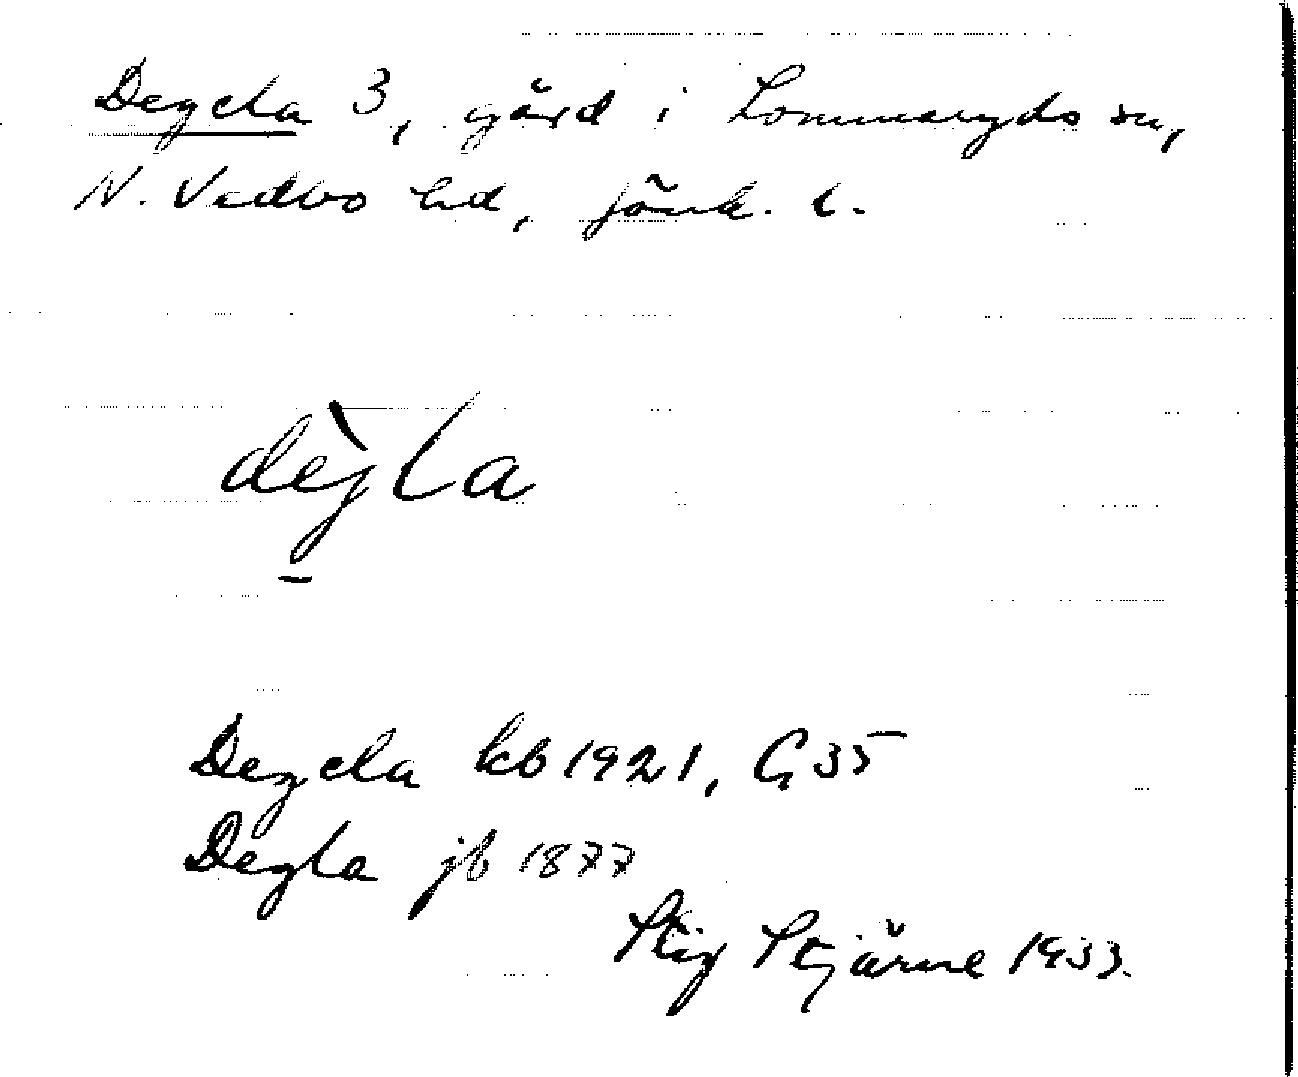 Degela 3, gård i Lommaryds sn,
N. Vedbo hd, Jönk. l.
dèjla
Degela kb 1921, G 35
Degla jb 1877
Stig Stjärne 1933.